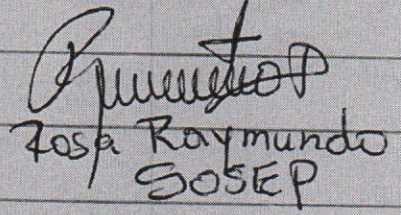 Rosa Raymundo
SOSEP